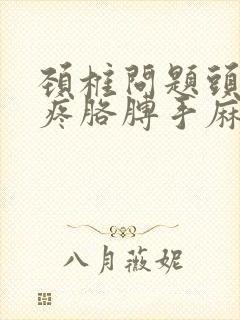 頚椎問題頭
疼胳膊手麻
八月薇妮